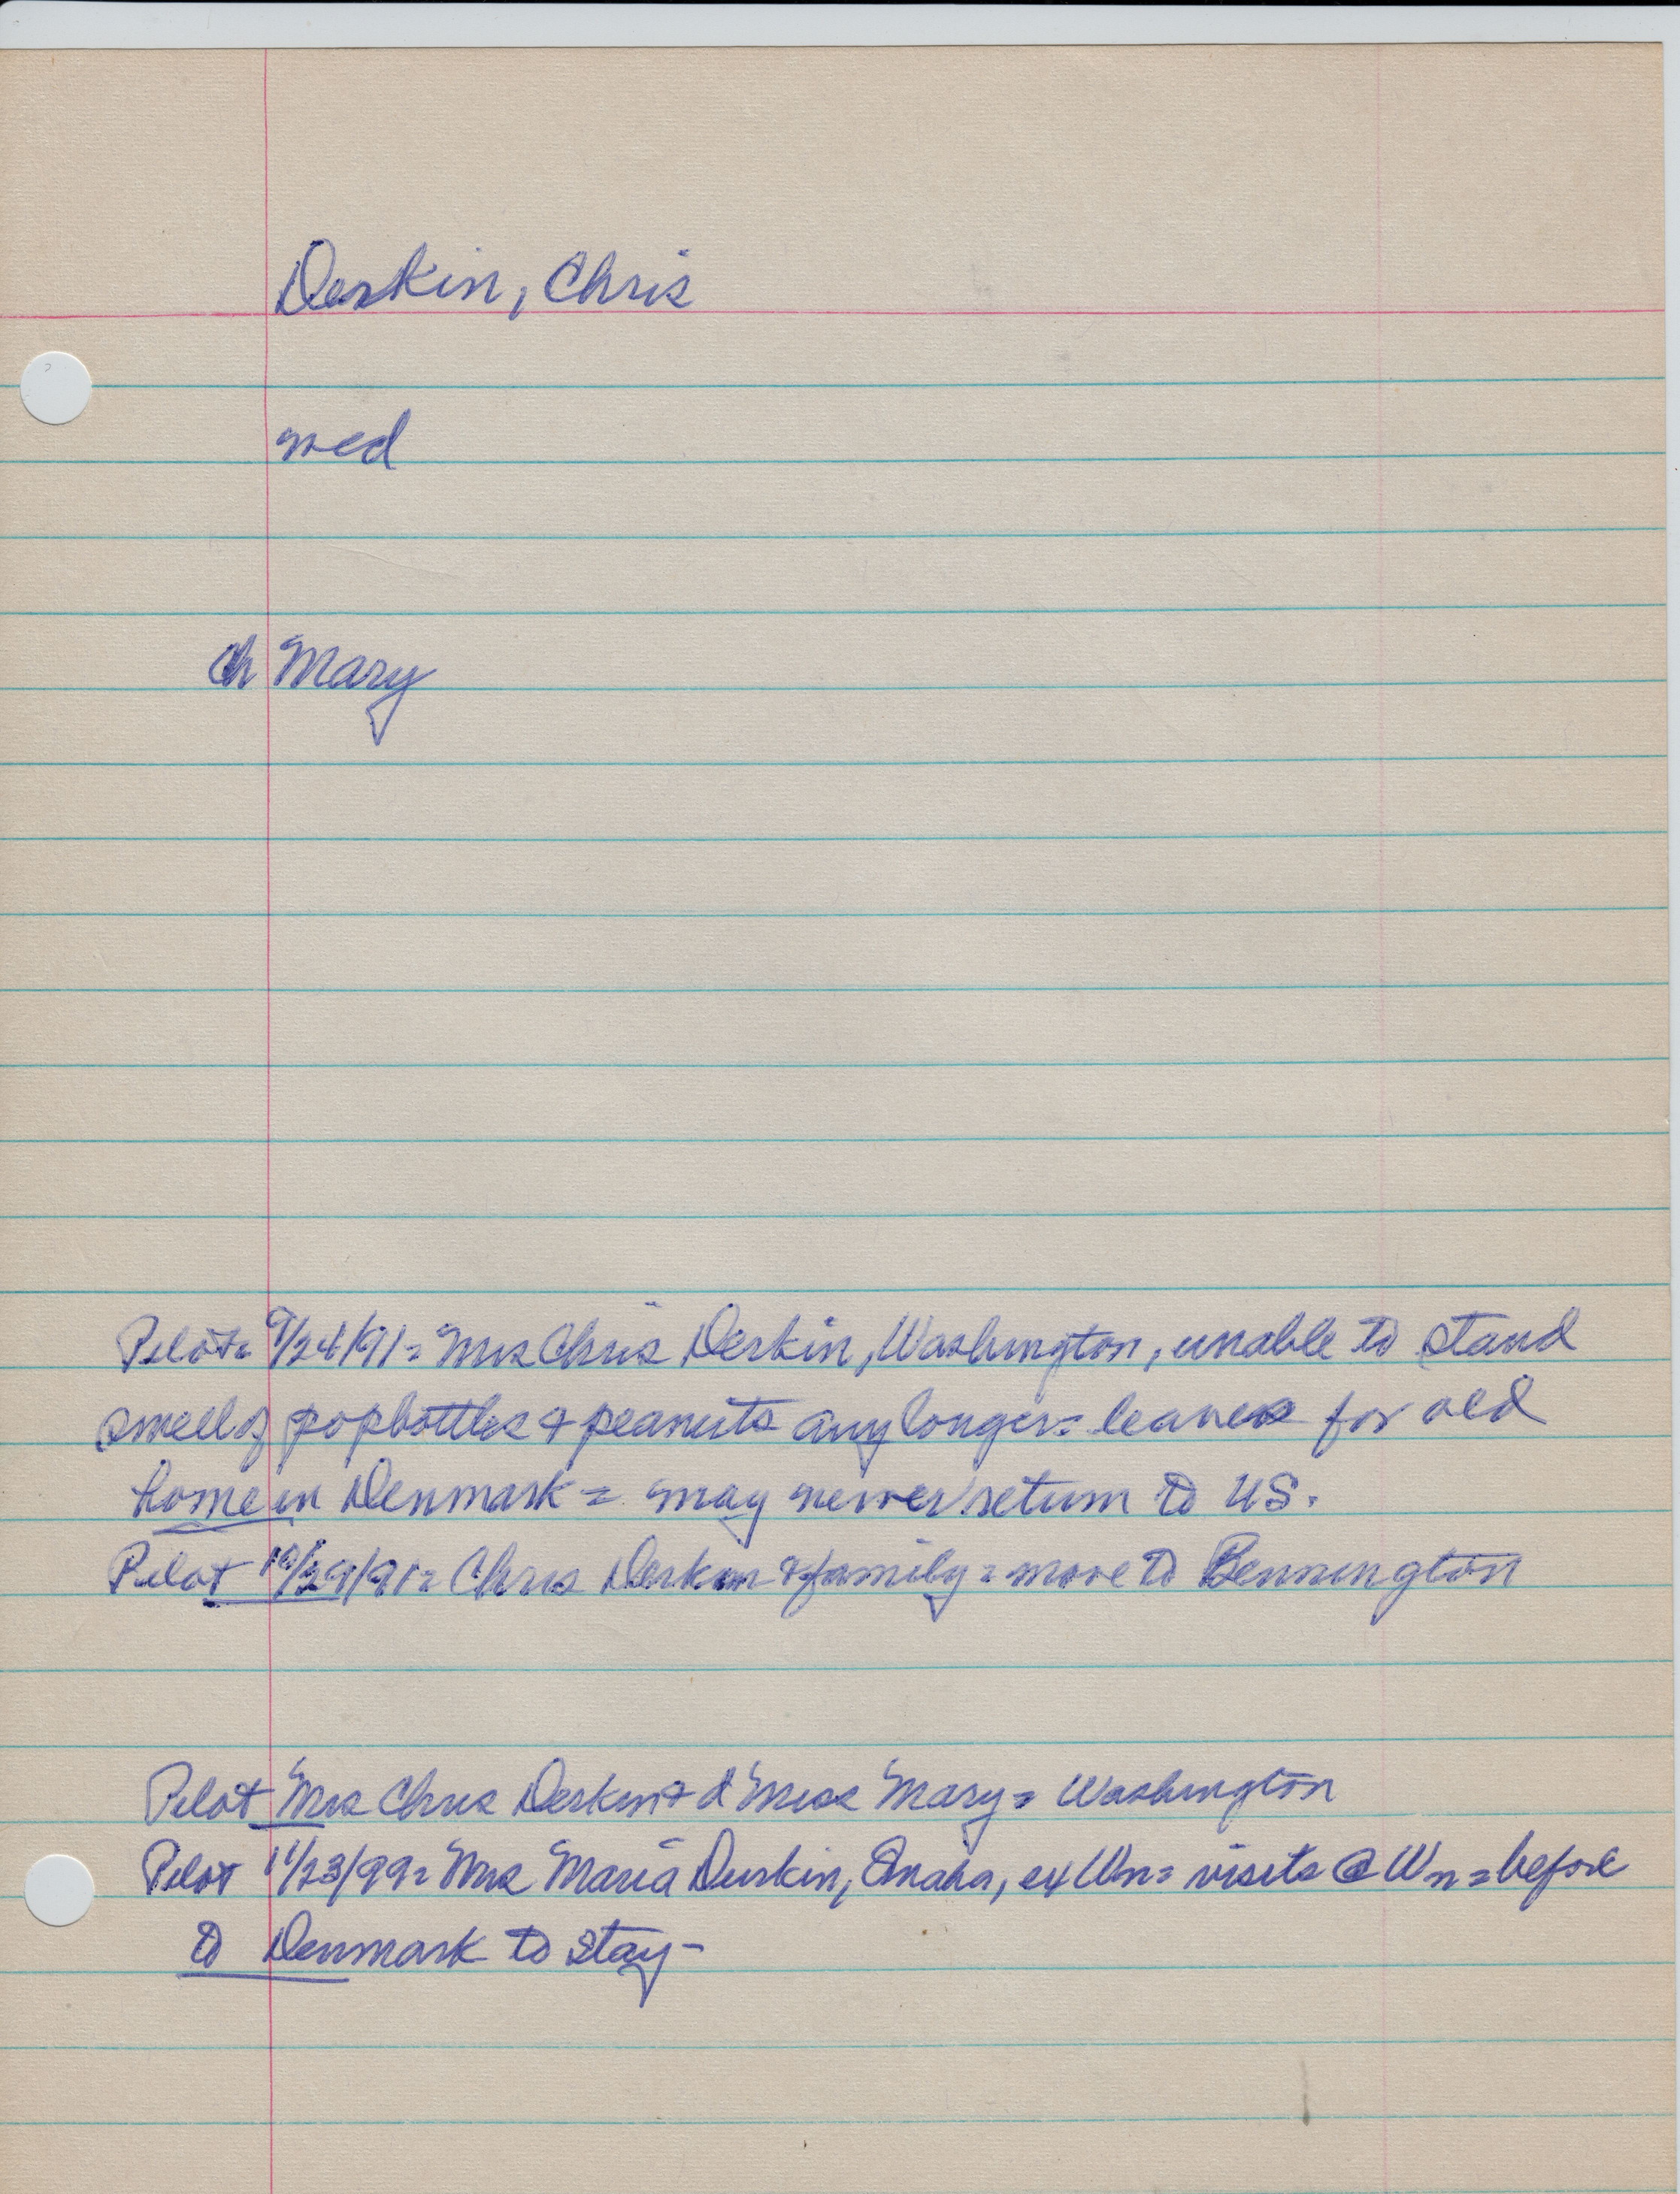 Deskin, Chris
med
ch Mary
Pilot= 9/24/91= Mrs Chris Deskin, Washington, unable to stand
smell of popbottles & peanuts any longer= leaves for old
home in Denmark = may never return to US.
Pilot 10/29/91= Chris Deskin & family= move to Bennington
Pilot Mrs Chris Deskin & d Miss Mary= Washington
Pilot 11/23/99= Mrs Maria Deskin, Omaha, ex Wn= visits @ Wn= before
to Denmark to stay-